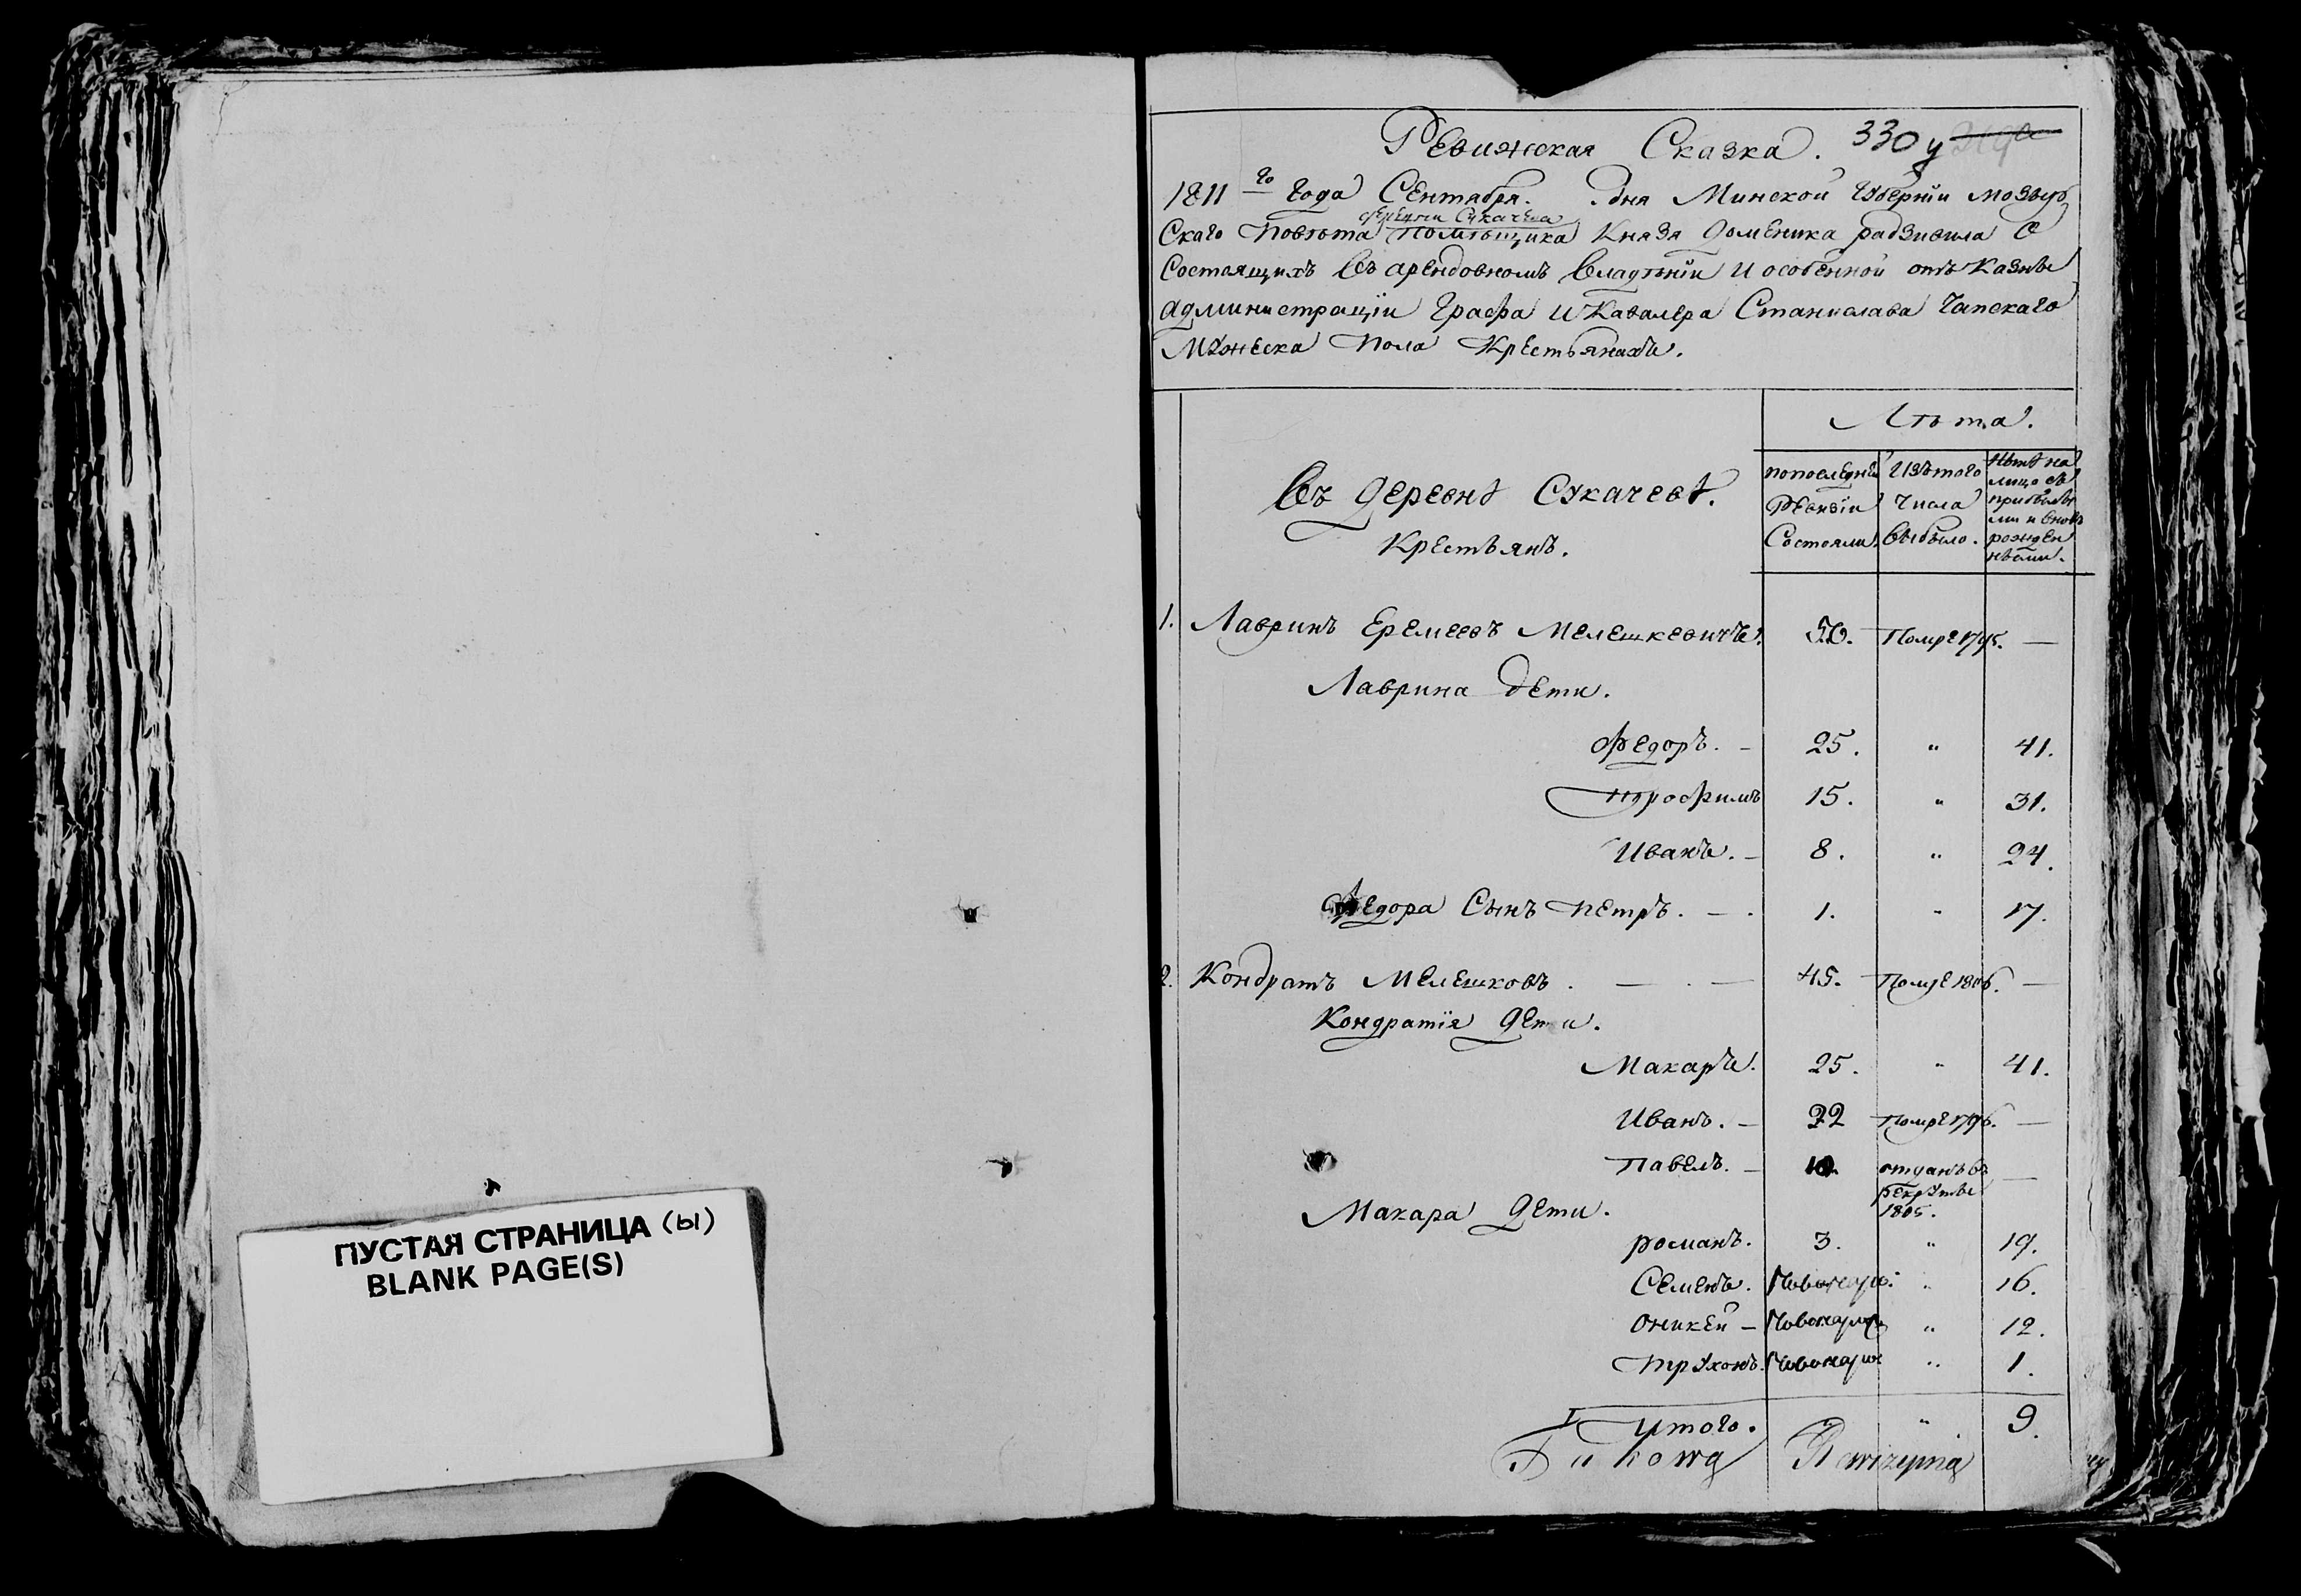 ПУСТАЯ СТРАНИЦА (ы)
BLANK PAGE(S)
Ревижская Сказка. 330 у
1811 го Года Сентября. дня Минской Губернїи мозыр
деревни Сукачева
Скаго Повѣта Помѣщика Князя Доменика радзивила О
Состоящихъ Въ арендовномъ Владѣнїи и особенной отъ Казны
администрацїи Графа и Кавалера Станислава Чапскаго
Мужеска Пола Крестьянахъ.
Лѣта.
Въ деревнѣ Сукачевѣ.
Крестьянъ.
попоследней Ревизїи Состояли.
Изъ того Числа выбыло.
Нынѣ на лицо съ прибылы ми и вновь рожден ными.
1. Лавринъ Еремеевъ Мелешкевичъ. 50. Помре 1795. —
Лаврина дети.
Федоръ. — 25. " 41.
трофимъ 15. " 31.
Иванъ. — 8. " 24.
Федора Сынъ Петръ. — . 1. " 17.
2. Кондратъ Мелешковъ . — . — 45. Помре 1806. —
Кондратїя дети.
Макаръ. 25. " 41.
Иванъ. — 22 Помре 1796. —
Павелъ. — 10. отданъ въ рекруты 1805. —
Макара дети.
романъ. 3. " 19.
Семенъ. Новонарож: " 16.
Оникей — Новонарож " 12.
трухонъ. Новонарож " 1.
Итого. " 9.
Rewizyina